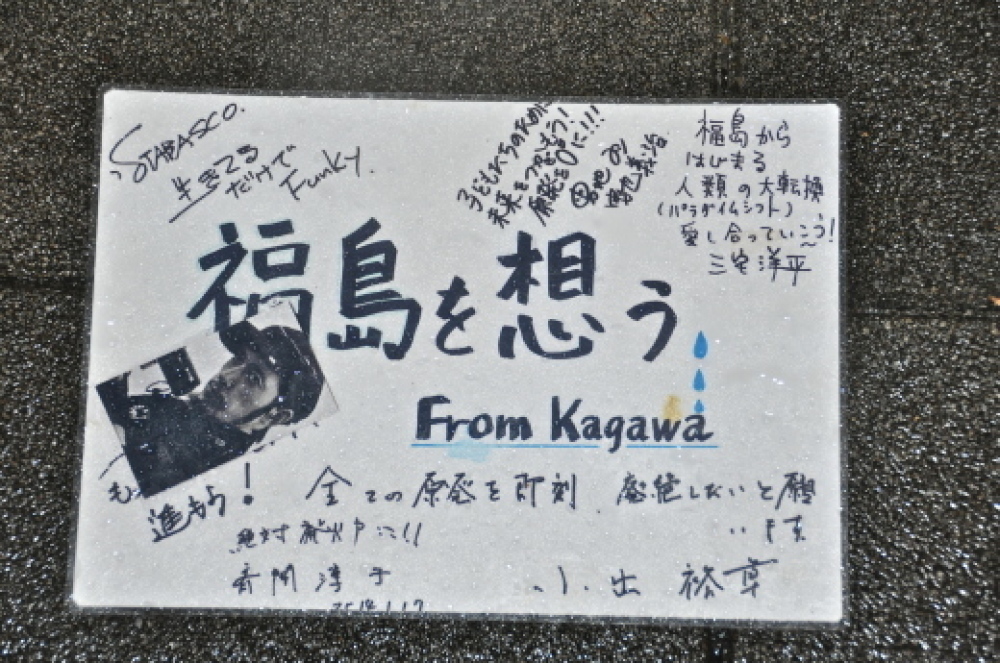 STABASCO.
生きてる
だけで
Funky.
子どもたちのために
未来をつくろう!
原発を0に!!!
福島から
はじまる
人類の大転換
(パラダイムシフト)
愛し合っていこう!
三宅洋平
福島を想う
From Kagawa
進もう!
全ての原発を即刻 廃絶したいと願
います
絶対
淳子
小出 裕章